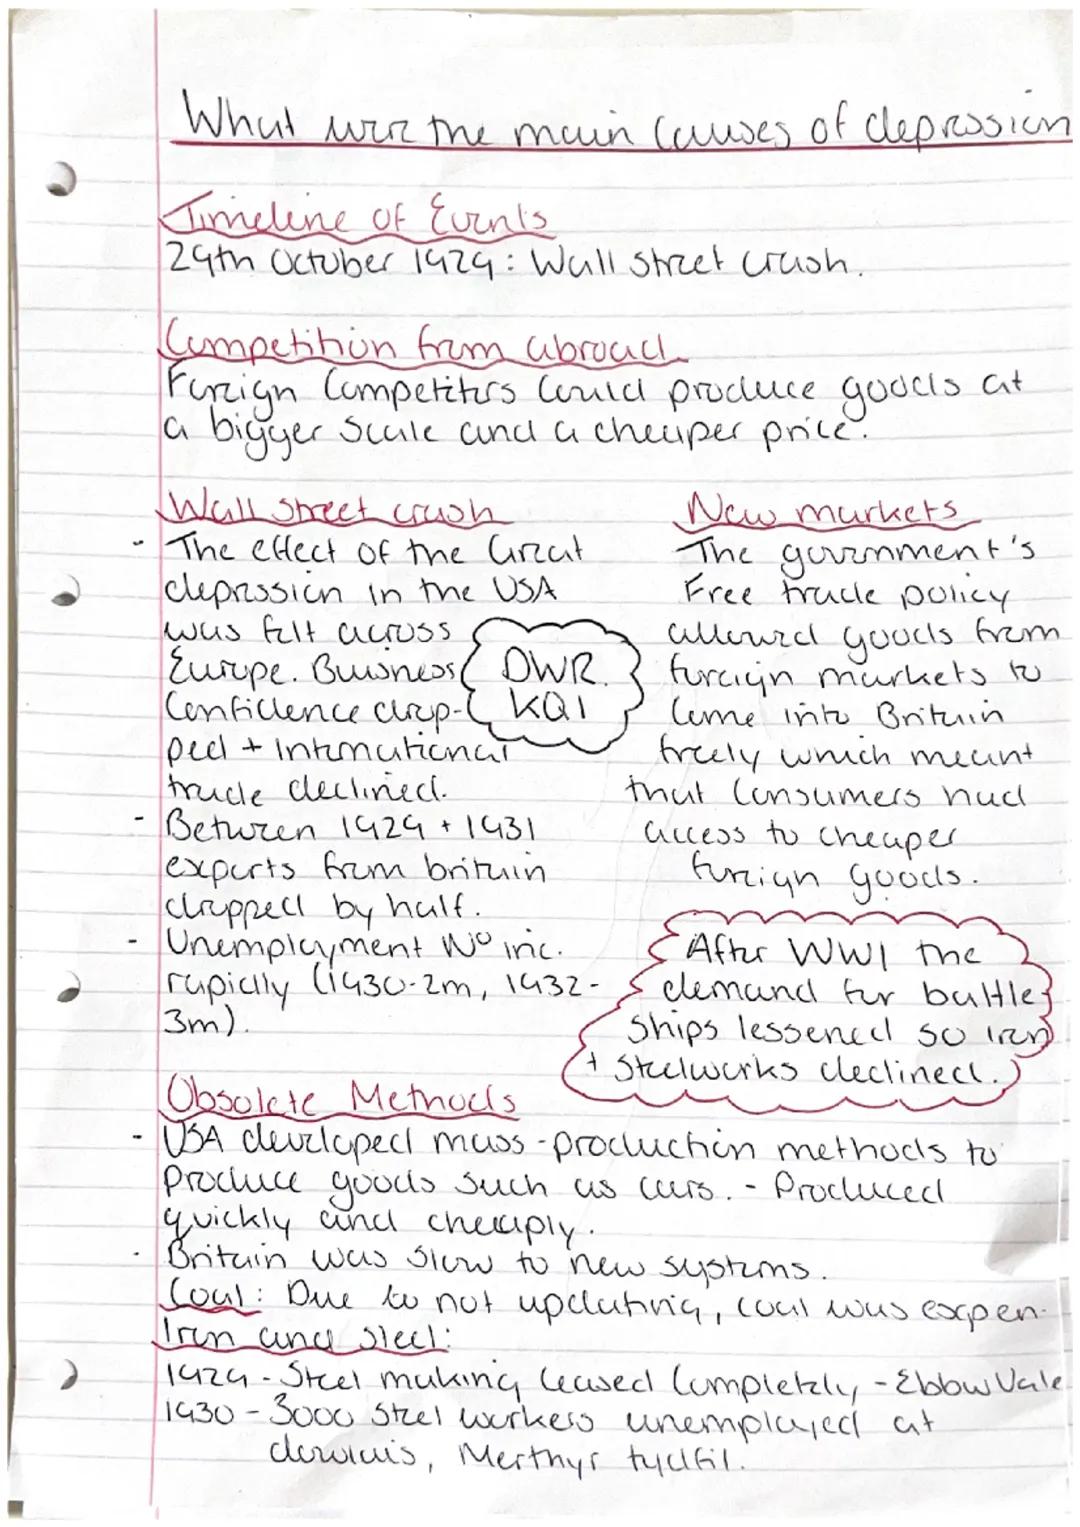 What were the main causes of depression
Timeline of Events
29th October 1929: Wall Street crash.
Competition from abroad
Foreign Competitors Could produce goods at
a bigger Scale and a cheaper price.
Wall Street crash
- The effect of the Great
depression in the USA
was felt across
Europe. Buisness
Confidence drop-
ped + International
trade declined.
- Between 1929 + 1931
exports from britain
dropped by half.
- Unemployment Nº inc.
rapidly (1930-2m, 1932-
3m).
DWR.
KQ1
New markets
The government's
Free trade policy
allowed goods from
foreign markets to
Come into Britain
freely which meant
that Consumers had
access to cheaper
foreign goods.
After WW1 the
demand for battle
Ships lessened so iron
+ Steelworks declined.
Obsolete Methods
- USA developed mass-production methods to
Produce goods such as cars. - Produced
quickly and cheaply.
- Britain was slow to new systems.
Coal: Due to not updating, coal was expen-
Iron and steel:
1929 - Steel making Ceased Completely - Ebbw Vale
1930 - 3000 Steel workers unemployed at
dowlais, Merthyr tydfil.